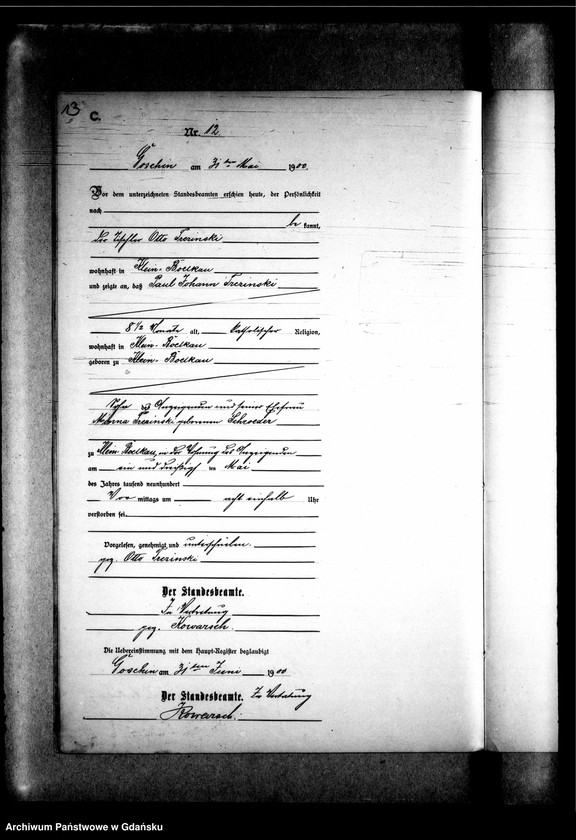 13
C.
Nr. 12
Goschin am 31ten Mai 1900.
Vor dem unterzeichneten Standesbeamten erschien heute, der Persönlichkeit
nach
be kannt,
der Tischler Otto Trezinski
wohnhaft in Klein-Boelkau
und zeigte an, daß Paul Johann Trezinski
8 1/2 Monate alt, katholischer Religion,
wohnhaft in Klein-Boelkau
geboren zu Klein-Boelkau
Sohn des Anzeigenden und seiner Ehefrau
Trezinski geborenen Schroeder
zu Klein Boelkau, in der Wohnung des Anzeigenden
am ein und dreißigsten Mai
des Jahres tausend neunhundert
Vor mittags um acht einhalb Uhr
verstorben sei.
Vorgelesen, genehmigt und unterschrieben.
gez. Otto Trezinski
Der Standesbeamte.
In Vertretung
gez. Kowarsch.
Die Uebereinstimmung mit dem Haupt-Register beglaubigt
Goschin am 31ten 1900
Der Standesbeamte. In Vertretung
Kowarsch.
Archiwum Państwowe w Gdańsku